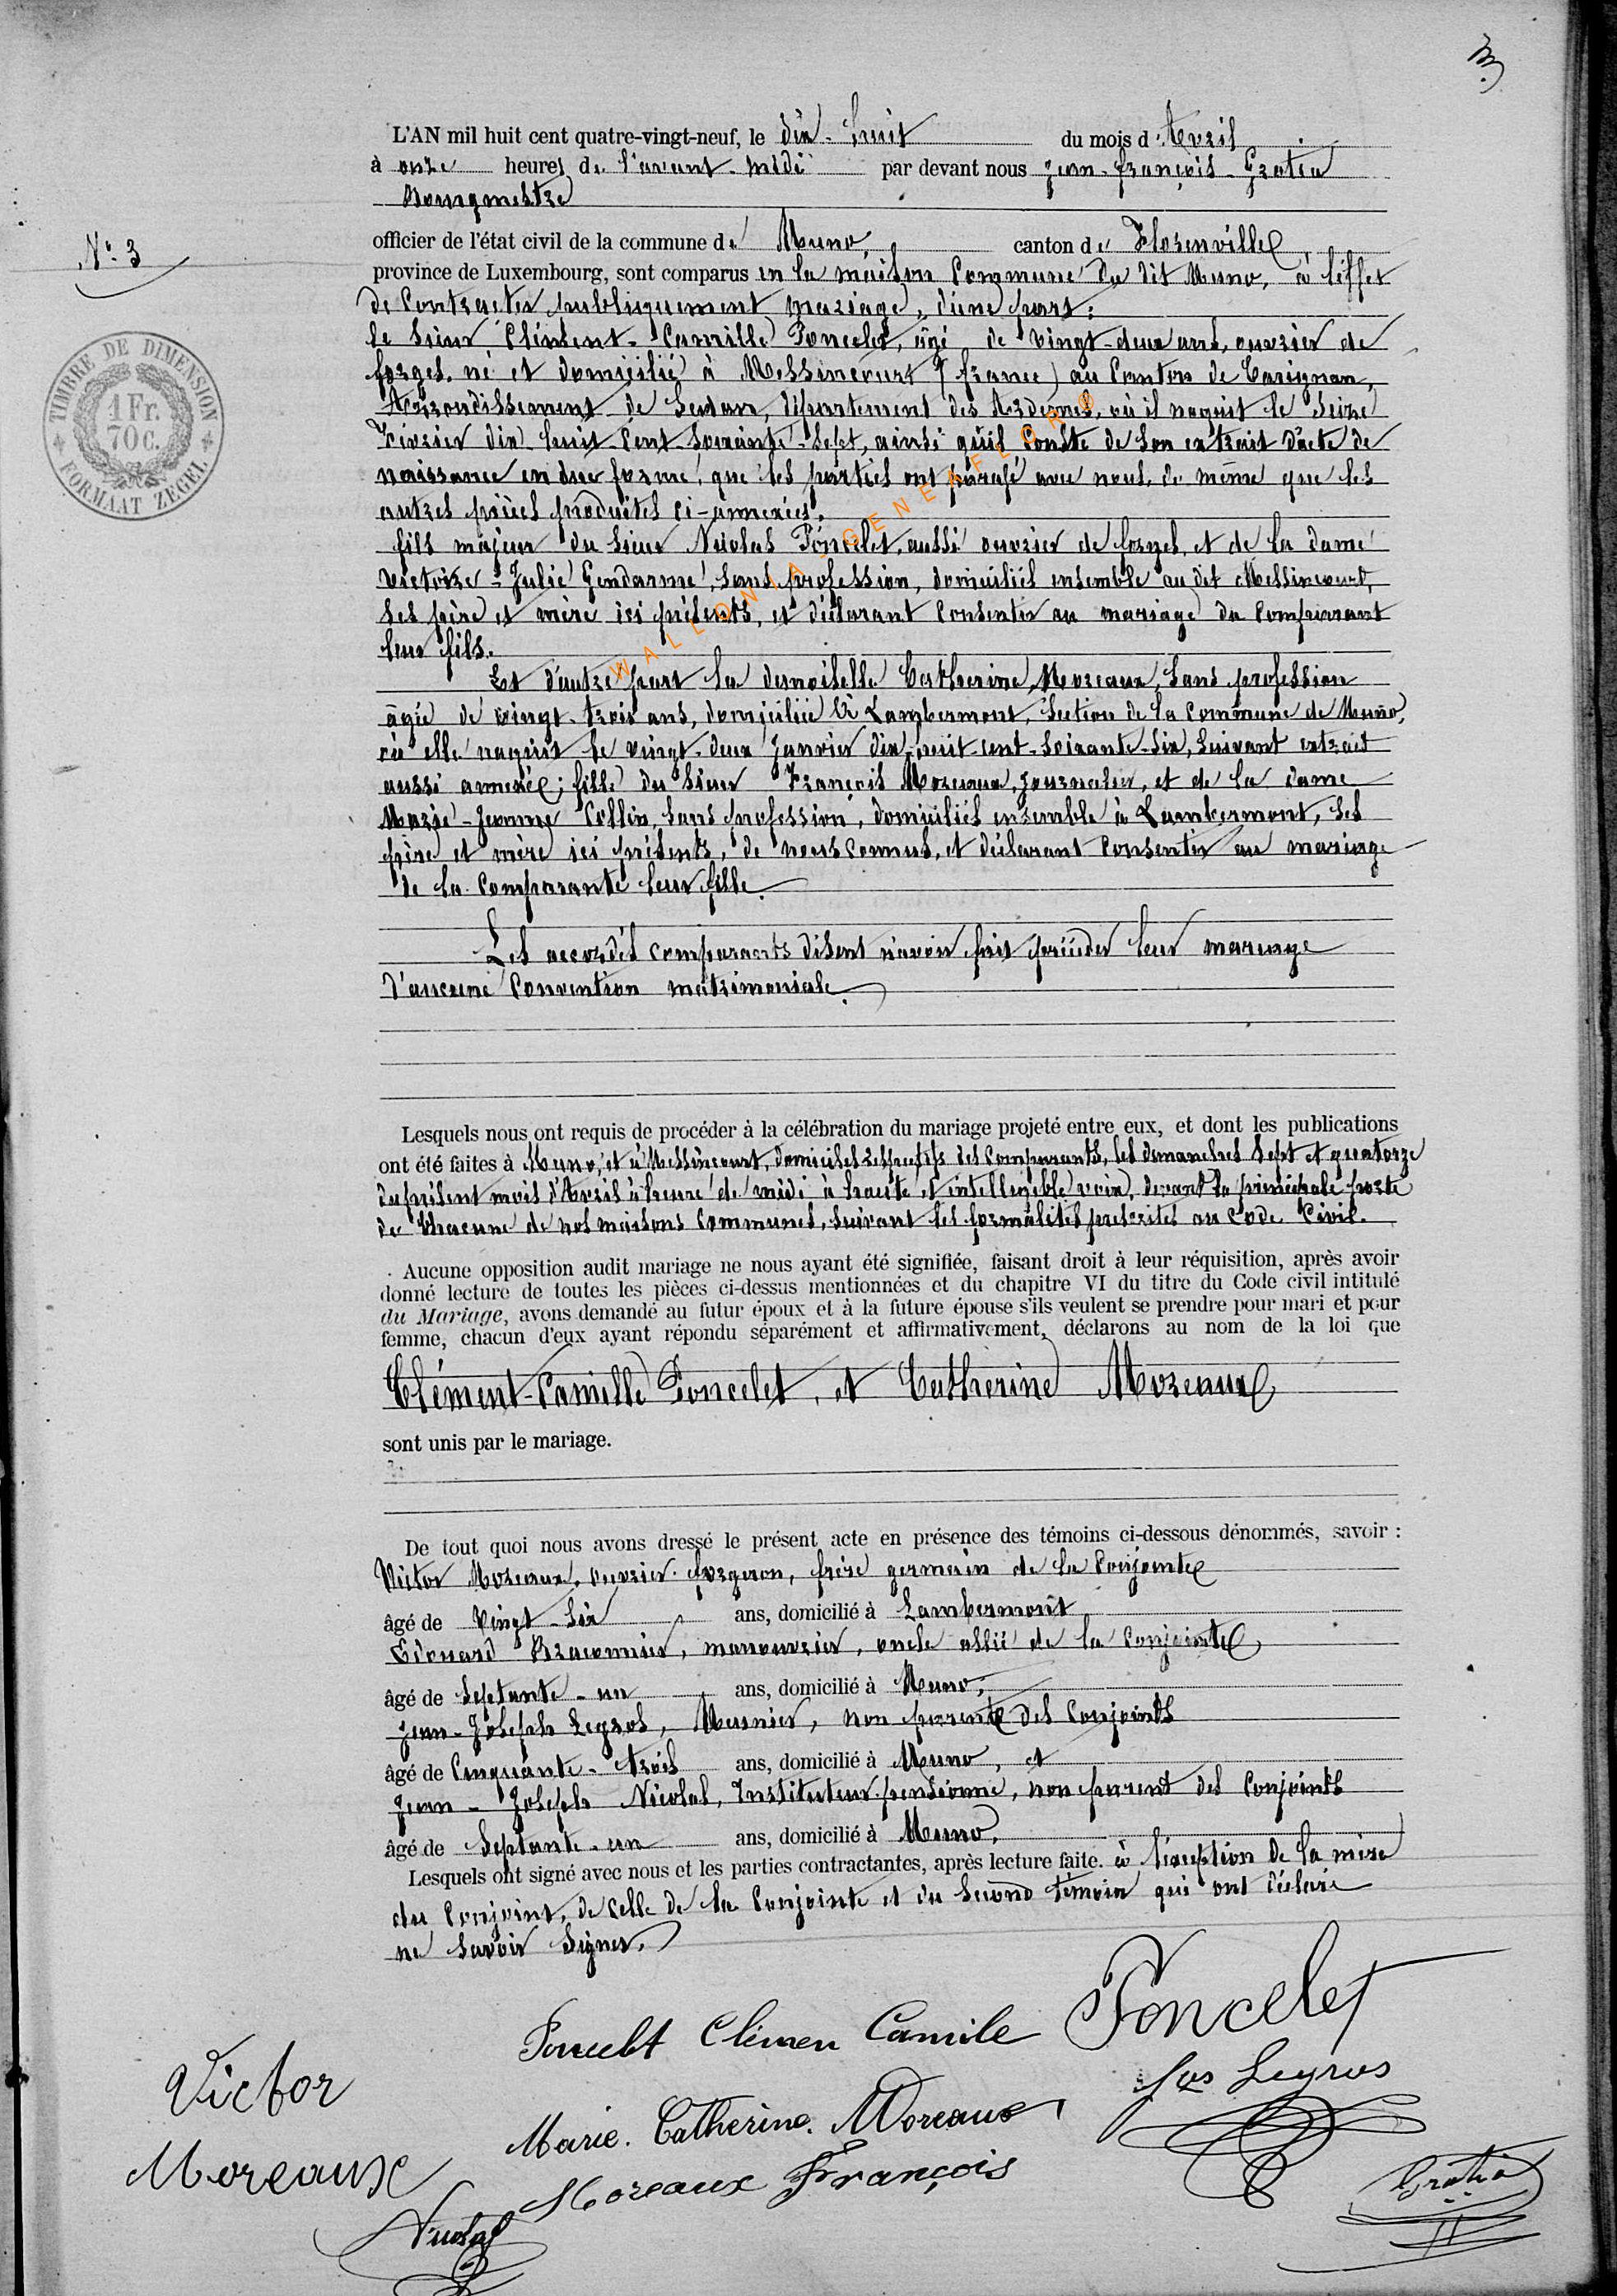 3
L'AN mil huit cent quatre-vingt-neuf, le dix-huit du mois d'Avril
à onze heures de l'avant-midi par devant nous Jean-François Gratia
Bourgmestre
officier de l'état civil de la commune de Muno, canton de Florenville
N° 3
province de Luxembourg, sont comparus en la maison Commune du dit Muno, à l'effet
de Contracter publiquement mariage, d'une part:
le sieur Clément-Camille Poncelet, âgé de vingt-deux ans, ouvrier de
forges, né et domicilié à Messincourt (france) au Canton de Carignan,
Arrondissement de Sedan, département des Ardennes, où il naquit le seize
Février dix-huit-Cent-soixante-sept, ainsi qu'il Conste de son extrait d'acte de
naissance en due forme, que les parties ont parafé avec nous, de même que les
autres pièces produites ci-annexées.
fils majeur du sieur Nicolas Poncelet, aussi ouvrier de forges, et de la dame
Victoire-Julie Gendarme, sans profession, domiciliés ensemble au dit Messincourt,
ses père et mère ici présents, et déclarant Consentir au mariage du Comparant
leur fils.
Et d'autre part la demoiselle Catherine Moreaux, sans profession
âgée de vingt-trois ans, domiciliée à Lambermont, section de la Commune de Muno,
où elle naquit le vingt-deux Janvier dix-huit-cent-soixante-six, suivant extrait
aussi annexé; fille du sieur François Moreaux, journalier, et de la dame
Marie-Jeanne Collin, sans profession, domiciliés ensemble à Lambermont, ses
père et mère ici présents, de nous Connus, et déclarant Consentir au mariage
de la Comparante leur fille.
Les accordés comparants disent n'avoir fait précéder leur mariage
d'aucune Convention matrimoniale.
TIMBRE DE DIMENSION
1 Fr.
70 c.
FORMAAT ZEGEL
WALLONIA-GENEAFLORE
Lesquels nous ont requis de procéder à la célébration du mariage projeté entre eux, et dont les publications
ont été faites à Muno, et à Messincourt, domiciles respectifs des Comparants, les dimanches sept et quatorze
du présent mois d'Avril à l'heure de midi à haute et intelligible voix, devant la principale porte
de Chacune de nos maisons Communes, suivant les formalités prescrites au Code Civil.
Aucune opposition audit mariage ne nous ayant été signifiée, faisant droit à leur réquisition, après avoir
donné lecture de toutes les pièces ci-dessus mentionnées et du chapitre VI du titre du Code civil intitulé
du Mariage, avons demandé au futur époux et à la future épouse s'ils veulent se prendre pour mari et pour
femme, chacun d'eux ayant répondu séparément et affirmativement, déclarons au nom de la loi que
Clément-Camille Poncelet, et Catherine Moreaux,
sont unis par le mariage.
De tout quoi nous avons dressé le présent acte en présence des témoins ci-dessous dénommés, savoir :
Victor Moreaux, ouvrier-forgeron, frère germain de la Conjointe
âgé de Vingt-six ans, domicilié à Lambermont
Edouard Braconnier, manouvrier, oncle allié de la Conjointe,
âgé de septante-un ans, domicilié à Muno,
Jean-Joseph Legros, Meunier, non parent des Conjoints
âgé de Cinquante-trois ans, domicilié à Muno, et
Jean-Joseph Nicolas, Instituteur pensionné, non parent des Conjoints
âgé de septante-un ans, domicilié à Muno,
Lesquels ont signé avec nous et les parties contractantes, après lecture faite. à l'exception de la mère
du Conjoint, de celle de la Conjointe et du second témoin qui ont déclaré
ne savoir signer.
Poncelet Clémen Camile Poncelet
Victor Moreaux
Jos Legros
Marie. Catherine. Moreaux
Moreaux François
Nicolas
Gratia